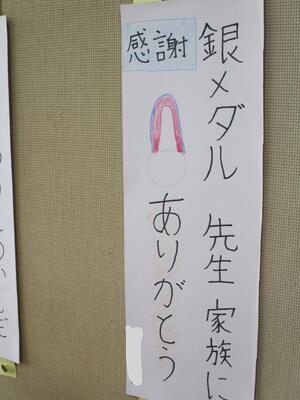 銀メダル 先生 家族に
ありがとう
感謝